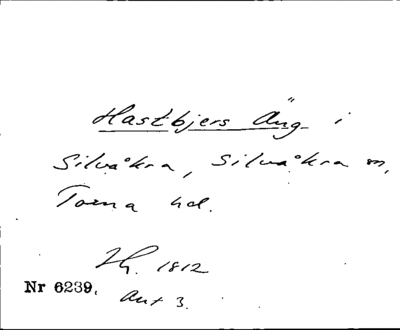 Hastbjers Äng i
Silvåkra, Silvåkra sn,
Torna hd.
1812
Nr 6239. Ant 3.